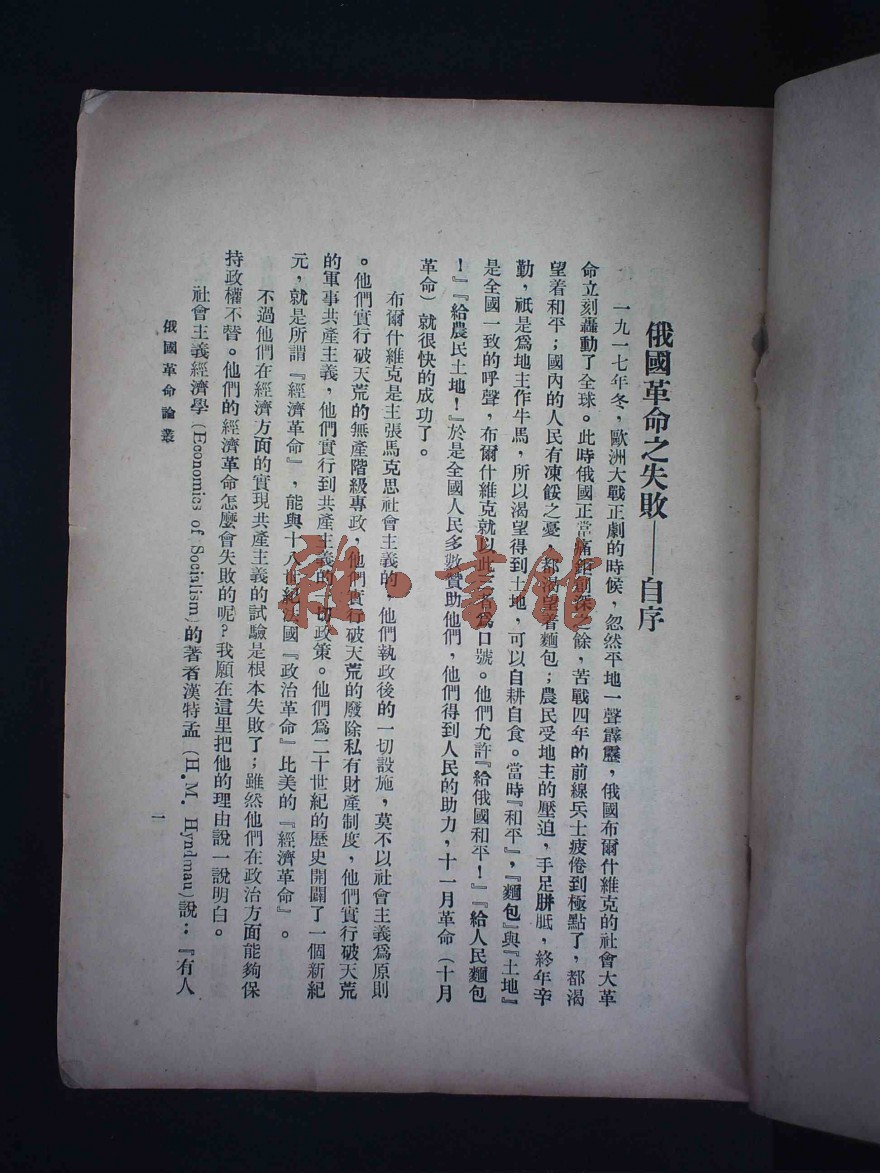 俄國革命之失敗——自序
一九一七年冬，歐洲大戰正劇的時候，忽然平地一聲霹靂，俄國布爾什維克的社會大革
命立刻轟動了全球。此時俄國正當痛鉅創深之餘，苦戰四年的前線兵士疲倦到極點了，都渴
望着和平；國內的人民有凍餒之憂，都渴望着麵包；農民受地主的壓迫，手足胼胝，終年辛
勤，祇是爲地主作牛馬，所以渴望得到土地，可以自耕自食。當時『和平』，『麵包』與『土地』
是全國一致的呼聲，布爾什維克就以此三者爲口號。他們允許『給俄國和平！』『給人民麵包
！』『給農民土地！』於是全國人民多數贊助他們，他們得到人民的助力，十一月革命（十月
革命）就很快的成功了。
布爾什維克是主張馬克思社會主義的，他們執政後的一切設施，莫不以社會主義爲原則
。他們實行破天荒的無產階級專政，他們實行破天荒的廢除私有財產制度，他們實行破天荒
的軍事共產主義，他們實行到共產主義的一切政策。他們爲二十世紀的歷史開闢了一個新紀
元，就是所謂『經濟革命』，能與十八世紀法國『政治革命』比美的『經濟革命』。
不過他們在經濟方面的實現共產主義的試驗是根本失敗了；雖然他們在政治方面能夠保
持政權不替。他們的經濟革命怎麼會失敗的呢？我願在這里把他的理由說一說明白。
社會主義經濟學（Economics of Socialism）的著者漢特孟（H. M. Hyndman）說：『有人
俄國革命論叢
一
雅·書館